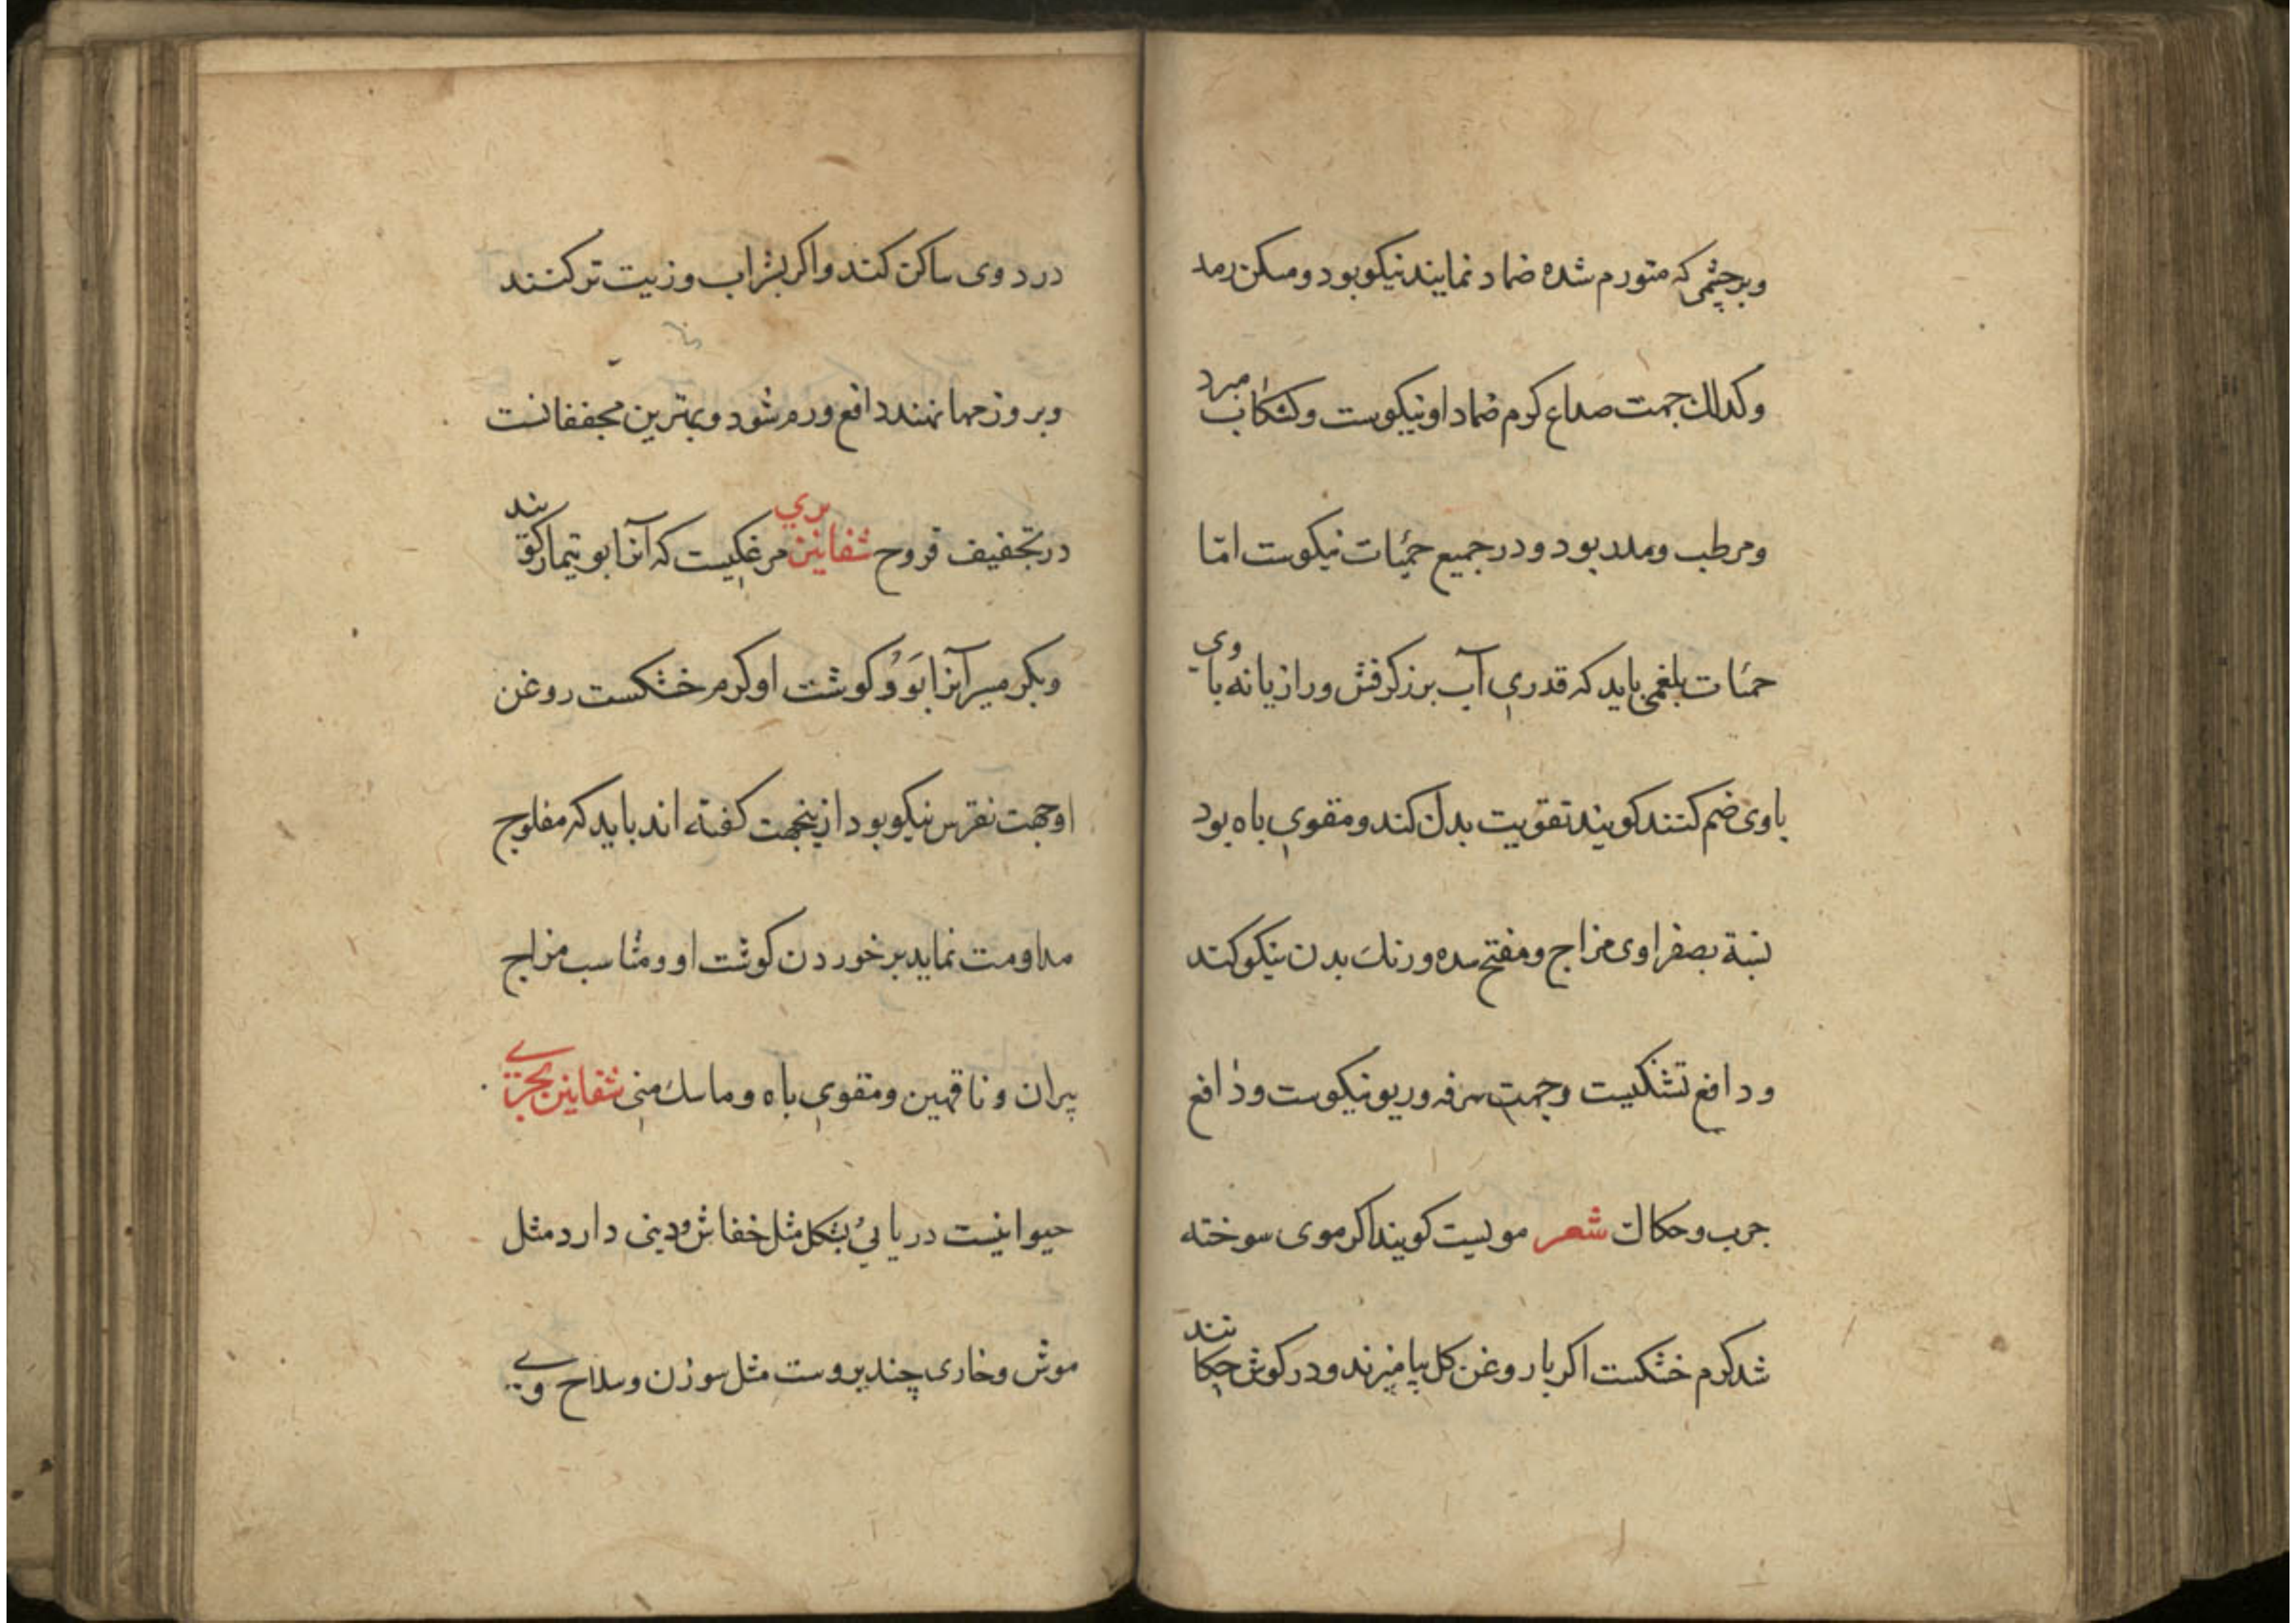 وبرچشمی که متورم شده ضماد نمایند نیکو بود ومسکن رمد
وکذلك جهت صداع کرم ضماد او نیکوست وکشکاب مبرد
ومرطب وملدد بود ودر جمیع حمیات نیکوست امّا
حمیات بلغمی باید که قدری آب بزر کرفش ورازیانه با وی
باوی ضم کنند کویند تقویت بدن کند ومقوی باه بود
نسبة بصفراوی مزاج ومفتح سده ورنك بدن نیکو کند
ودافع تشنکیست وجهت سرفه وربو نیکوست ودافع
جرب وحکاك شعر مویست کویند اکر موی سوخته
شد کرم خشکست اکر با روغن کل بیامیزند ودر کوش چکانند
درد وی ساکن کند واکر بشراب وزیت تر کنند
وبر ورمها نهند دافع ورم شود وبهترین مجففانست
در تجفیف قروح شفانین بري مرغکیست که آنرا بوتیمار کویند
وبکرمسیر آنرا بَووُ کوشت او کرم خشکست روغن
او جهت نقرس نیکو بود ازینجهت کفته اند باید که مفلوج
مداومت نماید بر خوردن کوشت او ومناسب مزاج
پیران وناقهین ومقوی باه وماسك منی شفانین بحری
حیوانیست دریائی بشکل مثل خفاش ودینی دارد مثل
موش وخاری چند بروست مثل سوزن وسلاح وی